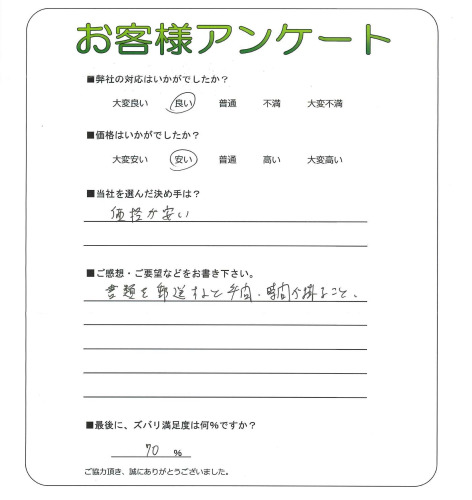 お客様アンケート
■弊社の対応はいかがでしたか?
大変良い 良い 普通 不満 大変不満
■価格はいかがでしたか?
大変安い 安い 普通 高い 大変高い
■当社を選んだ決め手は?
価格が安い
■ご感想・ご要望などをお書き下さい。
書類を郵送すると手間、時間が掛ること、
■最後に、ズバリ満足度は何%ですか?
70 %
ご協力頂き、誠にありがとうございました。